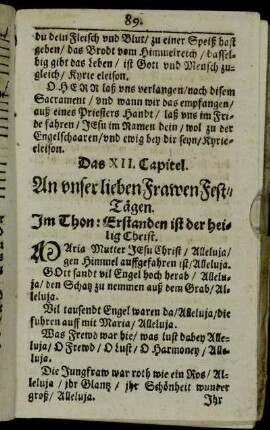 89.
du dein Fleisch vnd Blut/ zu einer Speiß hast
geben/ das Brodt vom Himmelreich/ dassel-
big gibt das Leben/ ist Gott vnd Mensch zu-
gleich/ Kyrie eleison.
O HERR laß vns verlangen/ nach disem
Sacrament/ vnd wann wir das empfangen/
auß eines Priesters Handt/ laß vns im Fri-
de fahren/ JEsu im Namen dein/ wol zu der
Engelschaaren/ vnd ewig bey dir seyn/ Kyrie-
eleison.
Das XII. Capitel.
An vnser lieben Frawen Fest/
Tägen.
Im Thon: Erstanden ist der hei-
lig Christ.
MAria Mutter JEsu Christ/ Alleluja/
gen Himmel auffgefahren ist/ Alleluja.
GOtt sandt vil Engel hoch herab/ Allelu-
ja/ den Schatz zu nemmen auß dem Grab/ Al-
leluja.
Vil tausendt Engel waren da/ Alleluja/ die
fuhren auff mit Maria/ Alleluja.
Was Frewd war hie/ was lust dabey Alle-
luja/ O Frewd/ O Lust/ O Harmoney/ Alle-
luja.
Die Jungfraw war roth wie ein Ros/ Al-
leluja/ jhr Glantz/ jhr Schönheit wunder
groß/ Alleluja.
Jhr